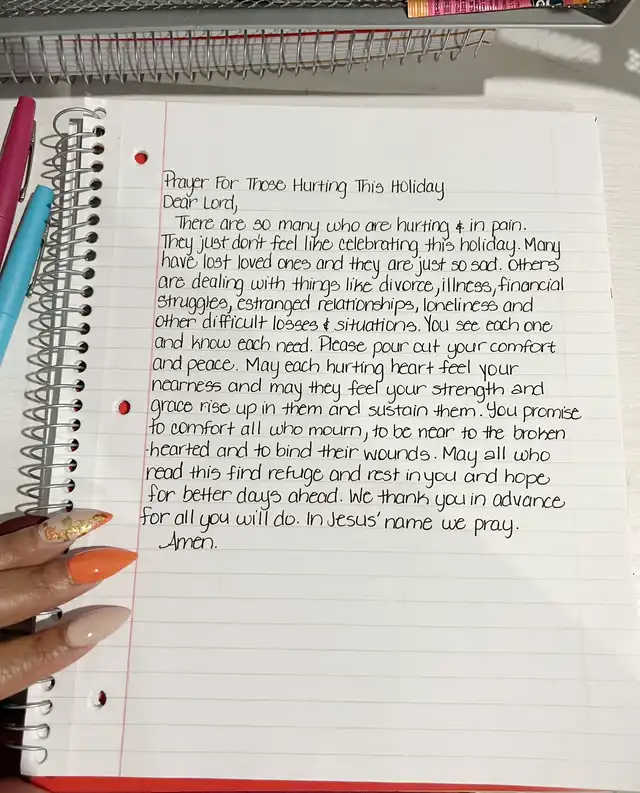 Prayer For Those Hurting This Holiday
Dear Lord,
There are so many who are hurting & in pain.
They just don't feel like celebrating this holiday. Many
have lost loved ones and they are just so sad. Others
are dealing with things like divorce, illness, financial
struggles, estranged relationships, loneliness and
other difficult losses & situations. You see each one
and know each need. Please pour out your comfort
and peace. May each hurting heart feel your
nearness and may they feel your strength and
grace rise up in them and sustain them. You promise
to comfort all who mourn, to be near to the broken
-hearted and to bind their wounds. May all who
read this find refuge and rest in you and hope
for better days ahead. We thank you in advance
for all you will do. In Jesus' name we pray.
Amen.